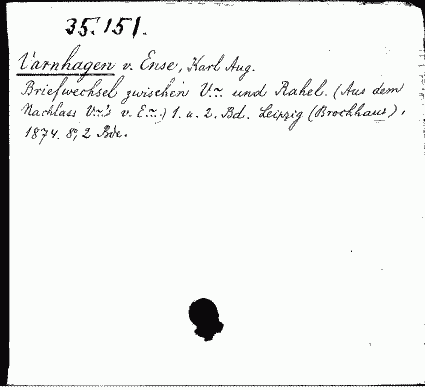 35.151.
Varnhagen v. Ense, Karl Aug.
Briefwechsel zwischen V.~. und Rahel. (Aus dem
Nachlass V.~.'s v. E.~.) 1. u. 2. Bd. Leipzig (Brockhaus),
1874. 8°, 2 Bde.